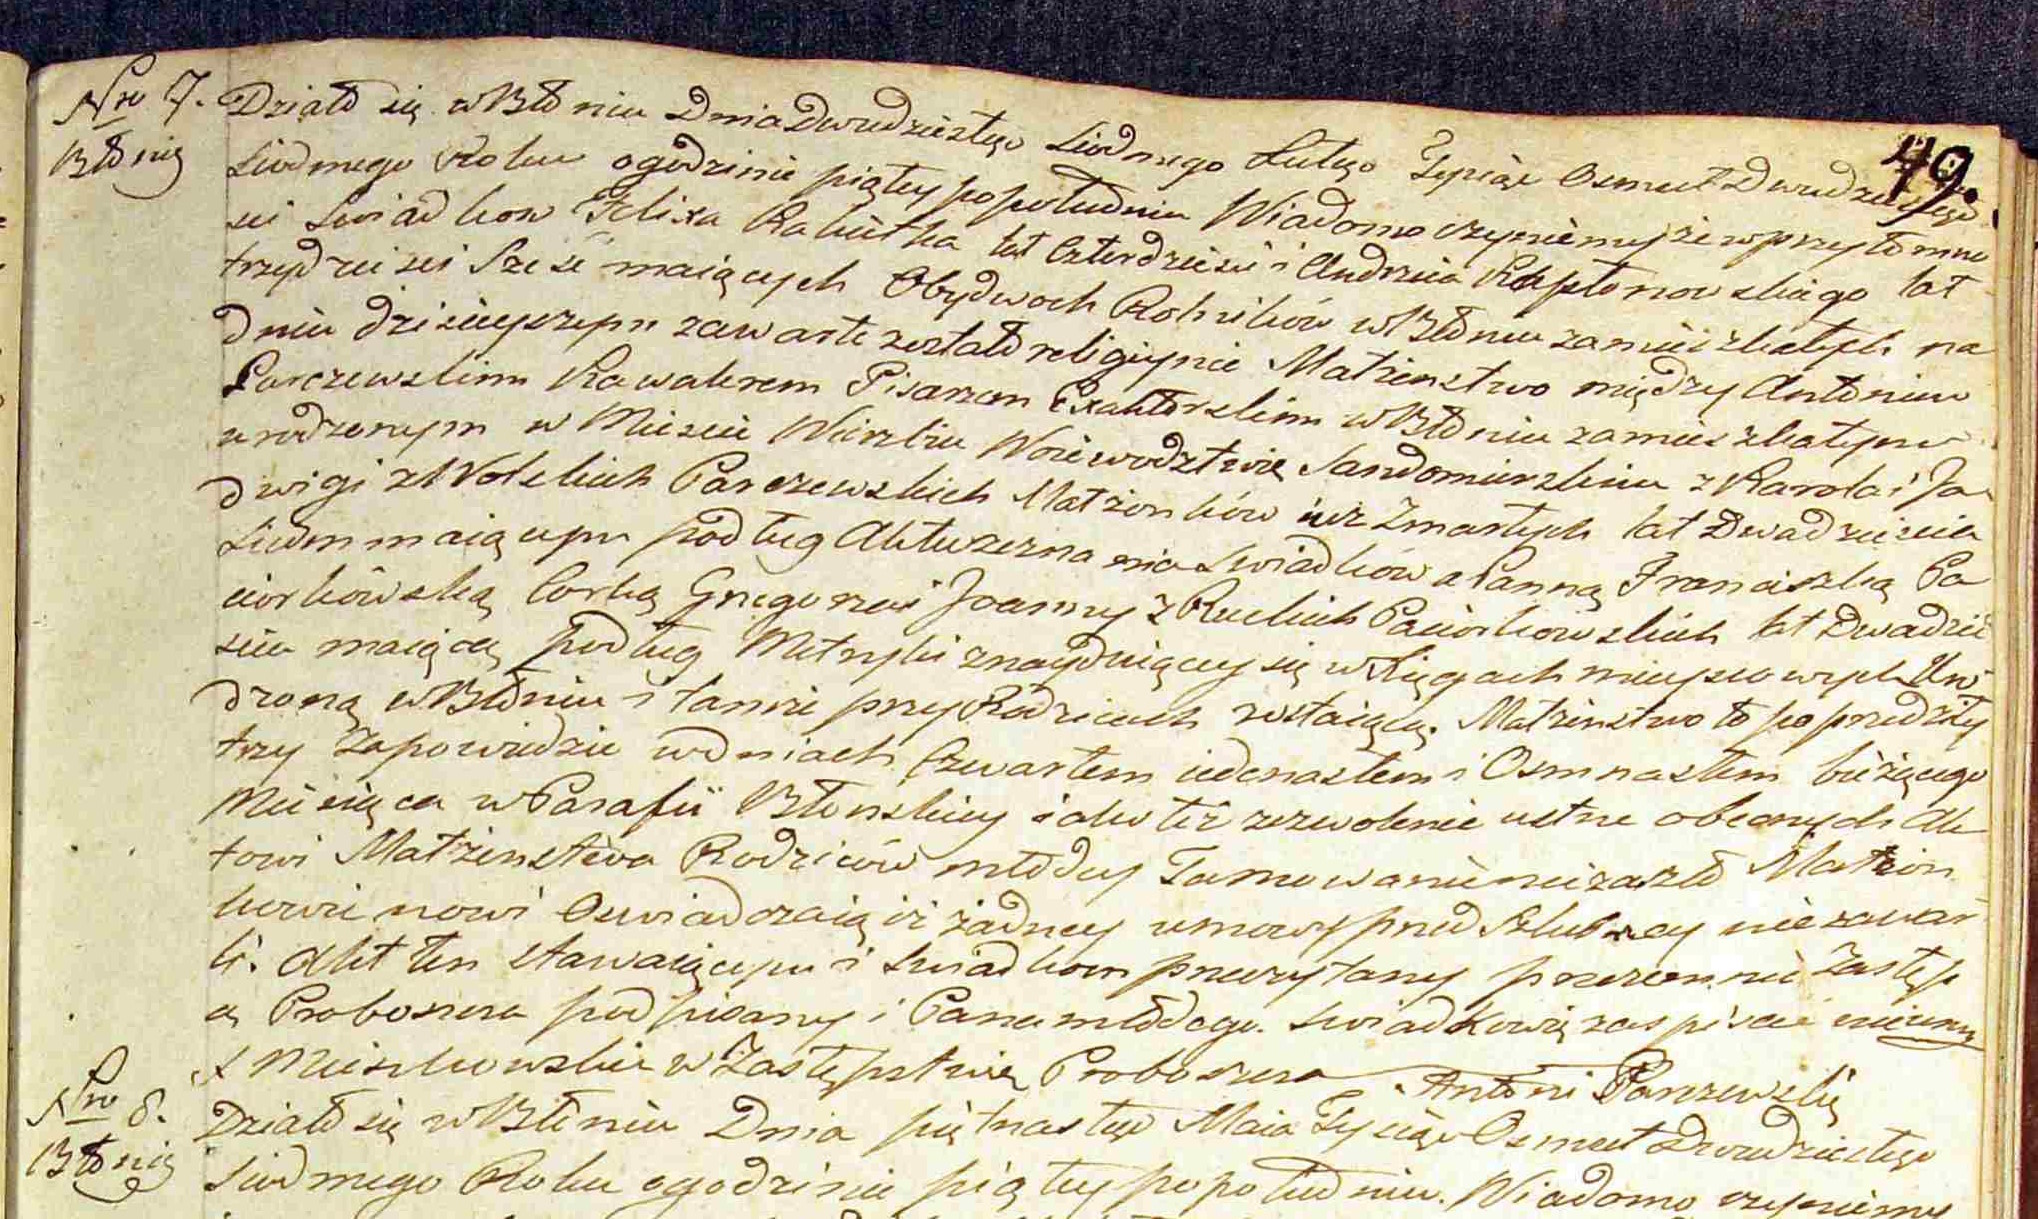 49.
Nro 7.
Błonie
Działo się w Błoniu Dnia Dwudziestego Siódmego Lutego Tysiąc Osmset Dwudziestego
Siódmego Roku o godzinie piątey popołudniu Wiadomo czyniemy że w przytomno
sci Swiadkow Felixa lat Czterdziesci i Andrzeia Kapłonowskiego lat
trzydziesci Szesc maiących Obydwoch Rolników w Błoniu zamieszkałych na
dniu dzisieyszym zawarte zostało religiynie Małżenstwo między Antonim
Parczewskim Kawalerem Pisarzem Exaktorskim w Błoniu zamieszkałym
urodzonym w Miescie Wierzbiu Woiewodztwie Sandomierskim z Karola i Ja
dwigi z Wolskich Parczewskich Małżonków iuż Zmarłych lat Dwadziescia
Siedm maiącym podług Aktu uznania Swiadków a Panną Franciszką Pa
ciorkowską Corką Grzegorza i Joanny z Ruckich Paciorkowskich lat Dwadzie
scia maiącą podług Metryki znayduiącey się w Xięgach mieyscowych Uro
dzoną w Błoniu i tamże przy Rodzicach zostaiącą. Małżenstwo to poprzedziły
trzy Zapowiedzie w dniach Czwartem iedenastem i Osmnastem bieżącego
Miesiąca w Parafii Błonskiey iako też zezwolenie ustne obecnych Ak
towi Małżenstwa Rodziców młodey Tamowanie nie zaszło Małżon
kowie nowi Oswiadczaią iż żadney umowy przed Slubney nie zawar
li. Akt ten stawaiącym i Swiadkom przeczytany przezemnie Zastęp
cę Proboszcza podpisany i Pana młodego. Swiadkowie zas pisać nieumią
X Mieszkowski w Zastępstwie Proboszcza Antoni Parczewski
Nro 8.
Błonie
Działo się w Błoniu Dnia piętnastego Maia Tysiąc Osmset Dwudziestego
Siódmego Roku o godzinie piątey popołudniu. Wiadomo czyniemy